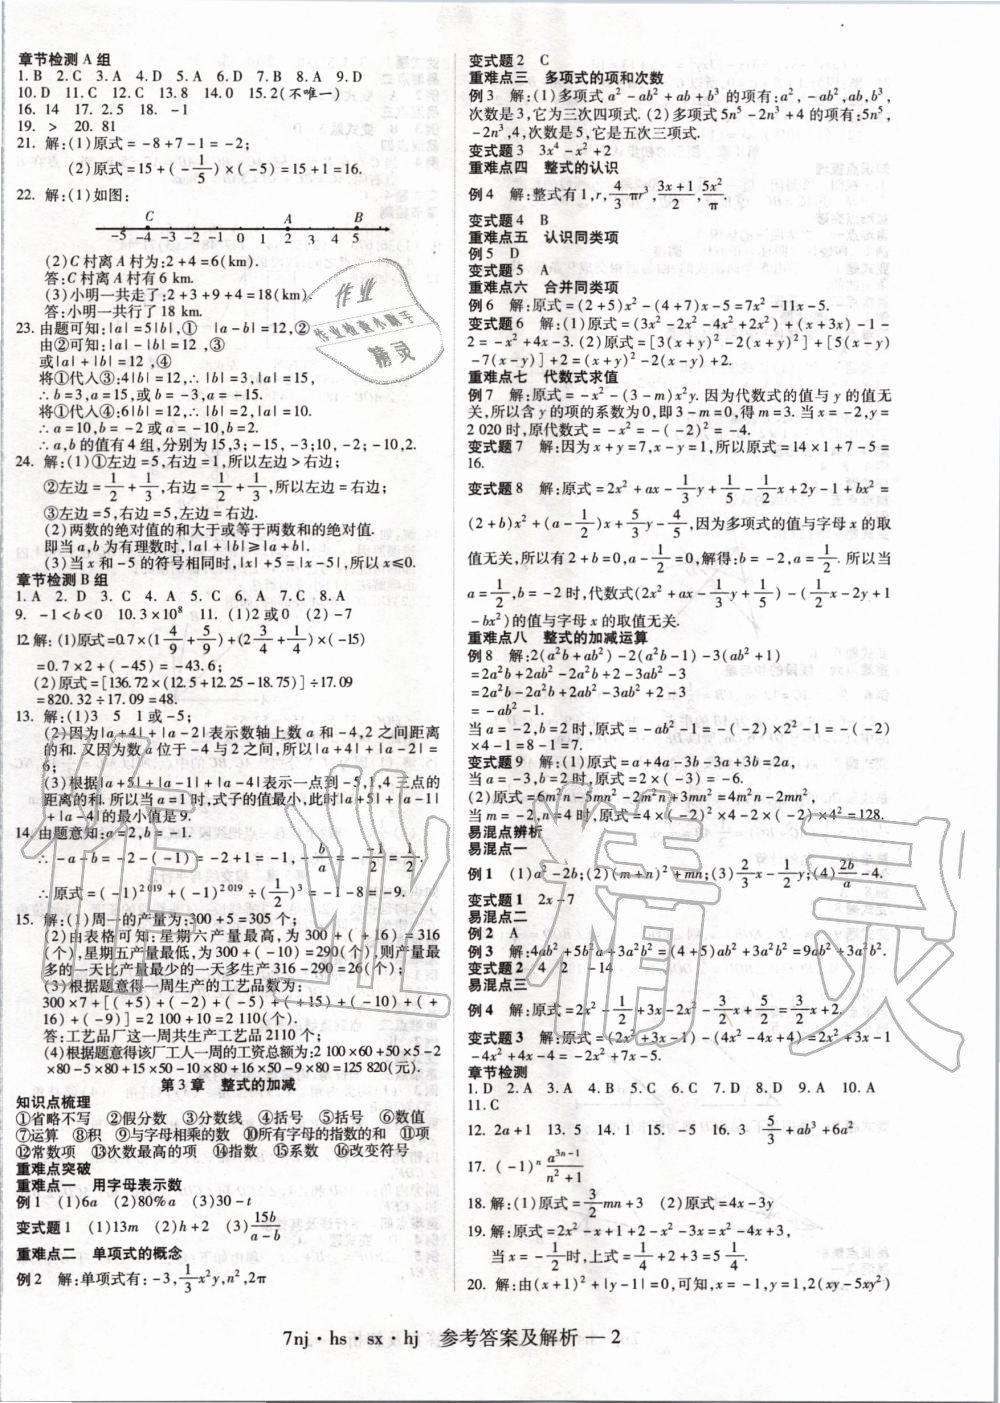 章节检测 A 组
1. B  2. C  3. A  4. D  5. A  6. D  7. B  8. A  9. D
10. D  11. C  12. C  13. 8  14. 0  15. 2(不唯一)
16. 14  17. 2.5  18. －1
19. ＞  20. 81
21. 解:(1)原式＝－8＋7－1＝－2;
(2)原式＝15＋(－1/5)×(－5)＝15＋1＝16.
22. 解:(1)如图:
C A B
－5 －4 －3 －2 －1 0 1 2 3 4 5
(2)C 村离 A 村为:2＋4＝6(km).
答:C 村离 A 村有 6 km.
(3)小明一共走了:2＋3＋9＋4＝18(km).
答:小明一共行了 18 km.
23. 由题可知:|a|＝5|b|,①  |a－b|＝12,②
由②可知:|a|－|b|＝12 ,③
或|a|＋|b|＝12,④
将①代入③:4|b|＝12,∴|b|＝3,|a|＝15,
∴b＝3,a＝15,或 b＝－3,a＝－15.
将①代入④:6|b|＝12,∴|b|＝2,|a|＝10.
∴a＝10,b＝－2 或 a＝－10,b＝2.
∴a,b 的值有 4 组,分别为 15,3;－15,－3;10,－2;－10,2.
24. 解:(1)①左边＝5,右边＝1,所以左边＞右边;
②左边＝1/2＋1/3,右边＝1/2＋1/3,左边＝右边;
③左边＝5,右边＝5,左边＝右边.
(2)两数的绝对值的和大于或等于两数和的绝对值.
即当 a,b 为有理数时,|a|＋|b|≥|a＋b|.
(3)当 x 和－5 的符号相同时,|x|＋5＝|x－5|,所以 x≤0.
章节检测 B 组
1. A  2. D  3. C  4. A  5. C  6. A  7. C  8. A
9. －1＜b＜0  10. 3×10⁸  11. (1)2 或 0  (2)－7
12 解: (1)原式＝0.7×(1 4/9＋5/9)＋(2 3/4＋1/4)×(－15)
＝0.7×2＋(－45)＝－43.6;
(2)原式＝[136.72×(12.5＋12.25－18.75)]÷17.09
＝820.32÷17.09＝48.
13. 解:(1)3  5  1 或－5;
(2)因为|a＋4|＋|a－2|表示数轴上数 a 和－4,2 之间距离
的和. 又因为数 a 位于－4 与 2 之间,所以|a＋4|＋|a－2|＝
6;
(3)根据|a＋5|＋|a－1|＋|a－4|表示一点到－5,1,4 三点的
距离的和. 所以当 a＝1 时,式子的值最小,此时|a＋5|＋|a－1|
＋|a－4|的最小值是 9.
14. 由题意知:a＝2,b＝－1.
∴－a－b＝－2－(－1)＝－2＋1＝－1,－b/a＝－(－1)/2＝1/2.
∴原式＝(－1)²⁰¹⁹＋(－1)²⁰¹⁹÷(1/2)³＝－1－8＝－9.
15. 解:(1)周一的产量为:300＋5＝305(个);
(2)由表格可知:星期六产量最高,为 300＋(＋16)＝316
(个),星期五产量最低,为 300＋(－10)＝290(个),则产量最
多的一天比产量最少的一天多生产 316－290＝26(个);
(3)根据题意得一周生产的工艺品数为:
300×7＋[(＋5)＋(－2)＋(－5)＋(＋15)＋(－10)＋(＋
16)＋(－9)]＝2 100＋10＝2 110(个).
答:工艺品厂这一周共生产工艺品 2110 个;
(4)根据题意得该厂工人一周的工资总额为:2 100×60＋50×5－2
×80－5×80＋15×50－10×80＋16×50－9×80＝125 820(元).
第 3 章　整式的加减
知识点梳理
①省略不写  ②假分数  ③分数线  ④括号  ⑤括号  ⑥数值
⑦运算  ⑧积  ⑨与字母相乘的数  ⑩所有字母的指数的和  ⑪项
⑫常数项  ⑬次数最高的项  ⑭指数  ⑮系数  ⑯改变符号
重难点突破
重难点一　用字母表示数
例 1  (1)6a  (2)80%a  (3)30－t
变式题 1  (1)13m  (2)h＋2  (3)15b/(a－b)
重难点二　单项式的概念
例 2  解:单项式有:－3,1/3x²y,n²,2π
变式题 2  C
重难点三　多项式的项和次数
例 3  解:(1)多项式 a²－ab²＋ab＋b³ 的项有:a²,－ab²,ab,b³,
次数是 3,它为三次四项式. (2)多项式 5n⁵－2n³＋4 的项有:5n⁵,
－2n³,4,次数是 5,它是五次三项式.
变式题 3  3x⁴－x²＋2
重难点四　整式的认识
例 4  解:整式有 1,r,4/3πr³,(3x＋1)/2,5x²/π.
变式题 4  B
重难点五　认识同类项
例 5  D
变式题 5  A
重难点六　合并同类项
例 6  解:原式＝(2＋5)x²－(4＋7)x－5＝7x²－11x－5.
变式题 6  解:(1)原式＝(3x²－2x²－4x²＋2x²)＋(x＋3x)－1－
2＝－x²＋4x－3. (2)原式＝[3(x＋y)²－2(x＋y)²]＋[5(x－y)
－7(x－y)]＝(x＋y)²－2(x－y)＋2.
重难点七　代数式求值
例 7  解:原式＝－x²－(3－m)x²y. 因为代数式的值与 y 的值无
关,所以含 y 的项的系数为 0,即 3－m＝0,得 m＝3. 当 x＝－2,y＝
2 020 时,原代数式＝－x²＝－(－2)²＝－4.
变式题 7  解:因为 x＋y＝7,x－y＝1,所以原式＝14×1＋7－5＝
16.
变式题 8  解:原式＝2x²＋ax－1/3y＋1/5－1/2x＋2y－1＋bx²＝
(2＋b)x²＋(a－1/2)x＋5/3y－4/5,因为多项式的值与字母 x 的取
值无关,所以有 2＋b＝0,a－1/2＝0,解得:b＝－2,a＝1/2. 所以当
a＝1/2,b＝－2 时,代数式(2x²＋ax－1/3y＋1/5)－(1/2x－2y＋1
－bx²)的值与字母 x 的取值无关.
重难点八　整式的加减运算
例 8  解:2(a²b＋ab²)－2(a²b－1)－3(ab²＋1)
＝2a²b＋2ab²－2a²b＋2－3ab²－3
＝2a²b－2a²b＋2ab²－3ab²＋2－3
＝－ab²－1.
当 a＝－2,b＝2 时,原式＝－ab²－1＝－(－2)×2²－1＝－(－2)
×4－1＝8－1＝7.
变式题 9  解:(1)原式＝a＋4a－3b＋3a＋3b＝2a,
当 a＝－3,b＝2 时,原式＝2×(－3)＝－6.
(2)原式＝6m²n－5mn²－2m²n＋3mn²＝4m²n－2mn²,
当 m＝－2,n＝4 时,原式＝4×(－2)²×4－2×(－2)×4²＝128.
易混点辨析
易混点一
例 1  (1)a²－2b;(2)(m＋n)²＋mn;(3)5y/x;(4)2b/a－4.
变式题 1  2x－7
易混点二
例 2  A
例 3  解:4ab²＋5b²a＋3a²b²＝(4＋5)ab²＋3a²b²＝9ab²＋3a²b².
变式题 2  4  2  －14
易混点三
例 4  解:原式＝2x²－1/2＋3x－2x²－3/2x＋5/2＝3/2x＋2,
变式题 3  解:(1)原式＝(3x²－2x－1)－(4x²－4x＋4)＝3x²－2x
－1－4x²＋4x－4＝－x²＋2x－5.
章节检测
1. D  2. A  3. C  4. D  5. A  6. C  7. D  8. B  9. A  10. A
11. C
12. 2a＋1  13. 5  14. 1  15. －5  16. 3  5/3＋ab³＋6a²
17. (－1)ⁿ a³ⁿ⁻¹/(n²＋1)
18. 解:(1)原式＝3/2mn＋3  (2)原式＝4x－3y
19. 解:原式＝2x²－x＋1＋2－x²－3x＝x²－4x＋3,
当 x＝－1/2时,上式＝1/4＋2＋3＝5 1/4.
20. 解:由(x＋1)²＋|y－1|＝0,可知,x＝－1,y＝1,2(xy－5xy²)
7nj・hs・sx・hj　参考答案及解析 — 2
作业
作业检查小助手
精灵
作业精灵